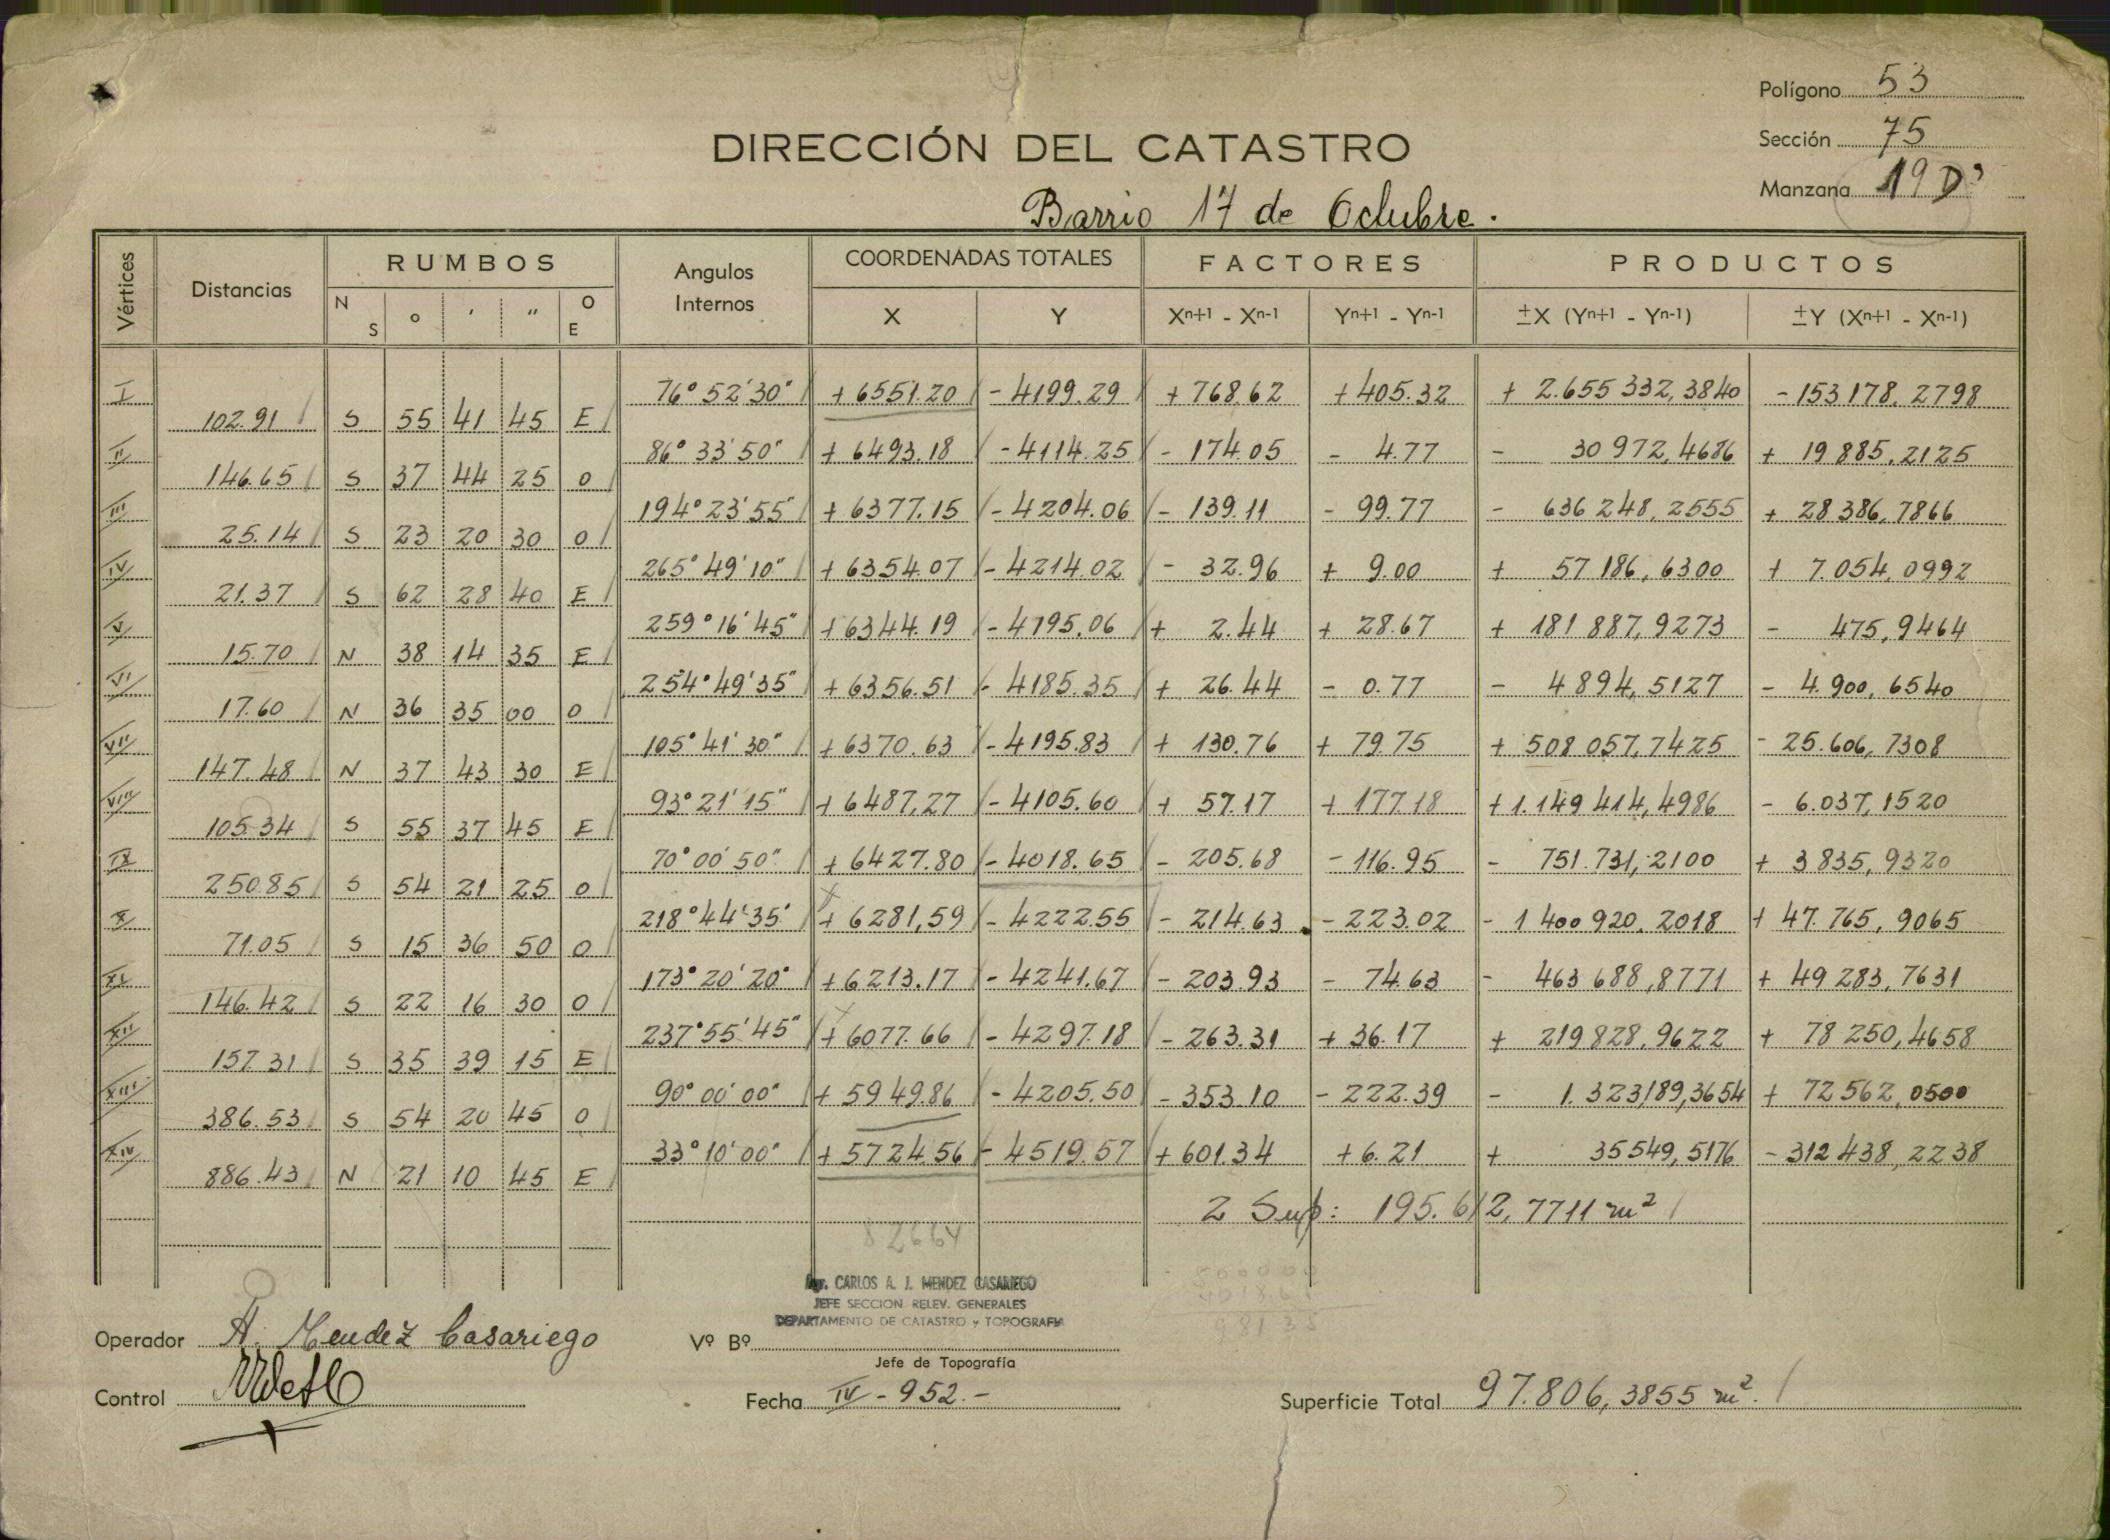 Polígono 53
Sección 75
Manzana 19 D
DIRECCIÓN DEL CATASTRO
Barrio 17 de Octubre.
Vértices Distancias RUMBOS Angulos Internos COORDENADAS TOTALES FACTORES PRODUCTOS
N S ° ' " O E X Y Xn+1 - Xn-1 Yn+1 - Yn-1 ±X (Yn+1 - Yn-1) ±Y (Xn+1 - Xn-1)
I 76° 52' 30" + 6551.20 - 4199.29 + 768.62 + 405.32 + 2.655 332,3840 - 153 178.2798
102.91 S 55 41 45 E
II 86° 33' 50" + 6493.18 - 4114.25 - 174.05 - 4.77 - 30 972,4686 + 19 885.2125
146.65 S 37 44 25 O
III 194° 23' 55" + 6377.15 - 4204.06 - 139.11 - 99.77 - 636 248,2555 + 28 386,7866
25.14 S 23 20 30 O
IV 265° 49' 10" + 6354.07 - 4214.02 - 32.96 + 9.00 + 57 186,6300 + 7.054,0992
21.37 S 62 28 40 E
V 259° 16' 45" + 6344.19 - 4195.06 + 2.44 + 28.67 + 181 887,9273 - 475,9464
15.70 N 38 14 35 E
VI 254° 49' 35" + 6356.51 - 4185.35 + 26.44 - 0.77 - 4 894,5127 - 4.900,6540
17.60 N 36 35 00 O
VII 105° 41' 30" + 6370.63 - 4195.83 + 130.76 + 79.75 + 508 057,7425 - 25.606,7308
147.48 N 37 43 30 E
VIII 93° 21' 15" + 6487,27 - 4105.60 + 57.17 + 177.18 + 1.149 414,4986 - 6.037,1520
105.34 S 55 37 45 E
IX 70° 00' 50" + 6427.80 - 4018.65 - 205.68 - 116.95 - 751.731,2100 + 3 835,9320
250.85 S 54 21 25 O
X 218° 44' 35' + 6281,59 - 4222.55 - 214.63 - 223.02 - 1 400 920.2018 + 47.765,9065
71.05 S 15 36 50 O
XI 173° 20' 20" + 6213.17 - 4241.67 - 203.93 - 74.63 - 463 688,8771 + 49 283,7631
146.42 S 22 16 30 O
XII 237° 55' 45" + 6077.66 - 4297.18 - 263.31 + 36.17 + 219 828,9622 + 78 250,4658
157.31 S 35 39 15 E
XIII 90° 00' 00" + 5949.86 - 4205.50 - 353.10 - 222.39 - 1.323,189,3654 + 72 562,0500
386.53 S 54 20 45 O
XIV 33° 10' 00" + 5724.56 - 4519.57 + 601.34 + 6.21 + 35 549,5176 - 312 438,2238
886.43 N 21 10 45 E
2 Sup: 195.612,7711 m²
82664
Agr. CARLOS A. J. MENDEZ CASARIEGO
JEFE SECCION RELEV. GENERALES
DEPARTAMENTO DE CATASTRO y TOPOGRAFIA
Operador A. Mendez Casariego
Vº Bº
Jefe de Topografía
Control
Fecha IV - 952. -
Superficie Total 97.806,3855 m².